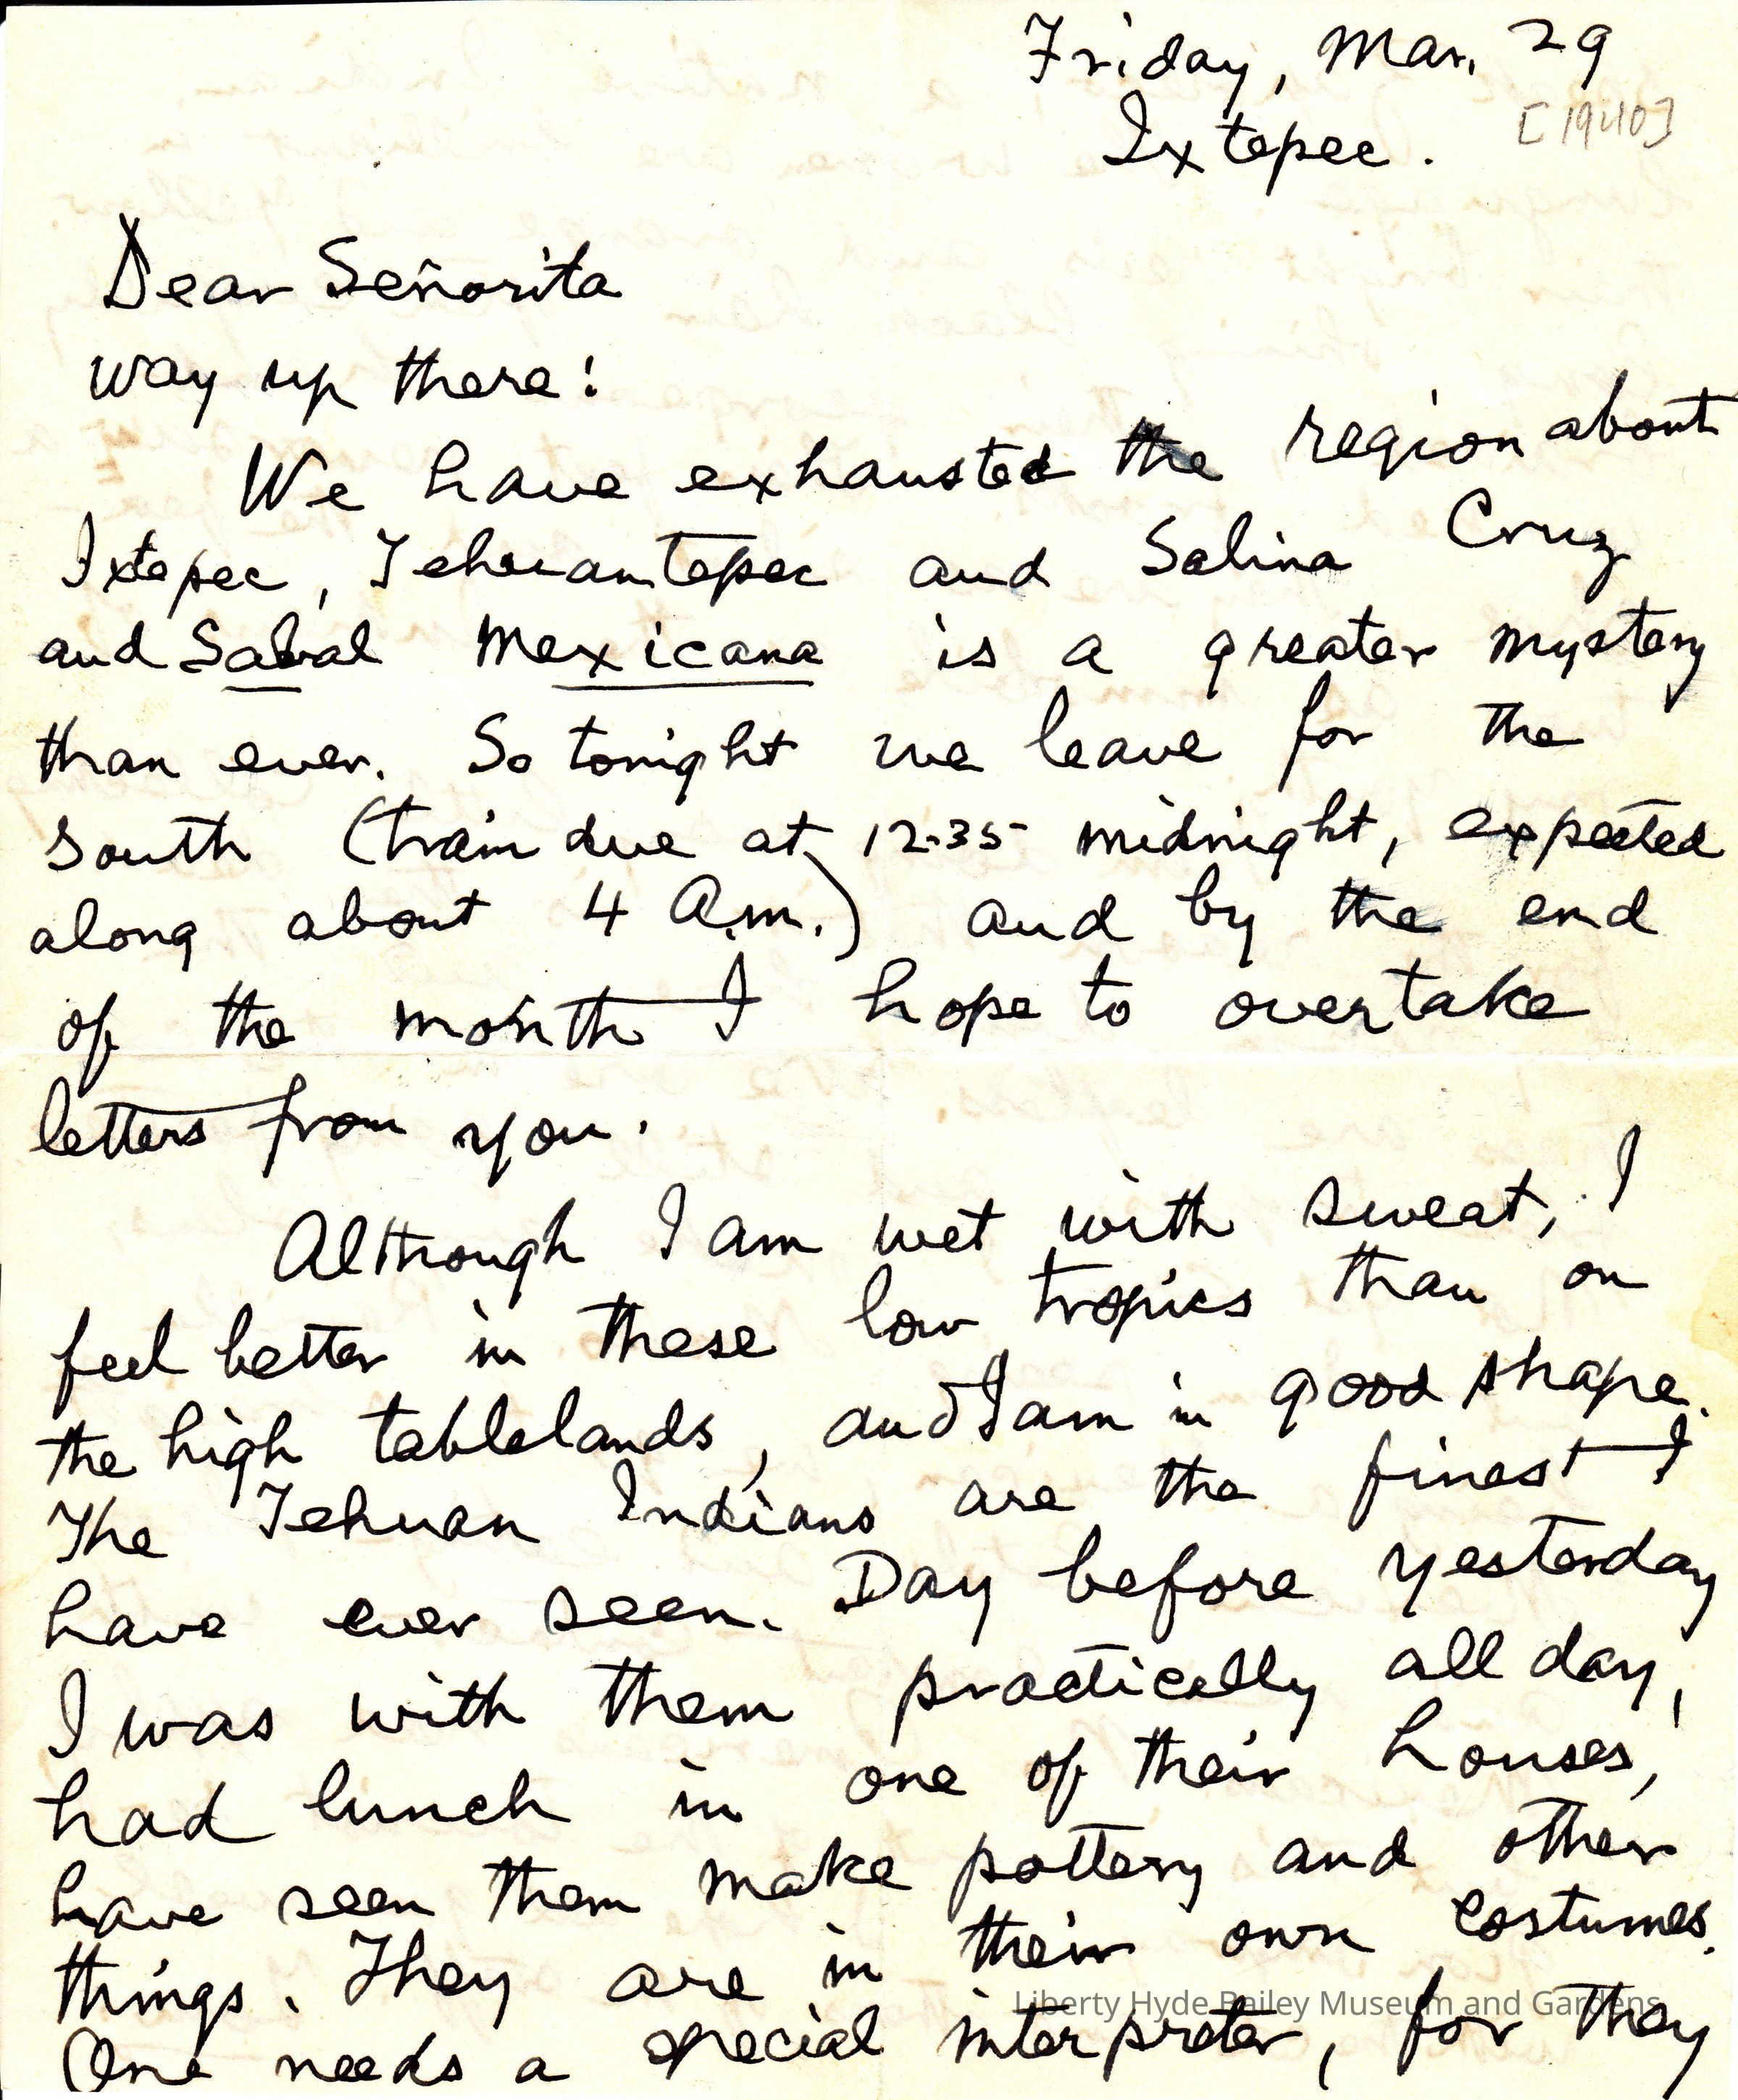 Friday, Mar. 29
Ixtepec.
[1940]
Dear Señorita
way up there:
We have exhausted the region about
Ixtepec, Tehuantepec and Salina Cruz
and Sabal Mexicana is a greater mystery
than ever. So tonight we leave for the
south (train due at 12.35 midnight, expected
along about 4 A.m.) and by the end
of the month I hope to overtake
letters from you.
Although I am wet with sweat, I
feel better in these low tropics than on
the high tablelands, and I am in good shape.
The Tehuan Indians are the finest I
have ever seen. Day before yesterday
I was with them practically all day,
had lunch in one of their houses,
have seen them make pottery and other
things. They are in their own costumes.
Liberty Hyde Bailey Museum and Gardens
One needs a special interpreter, for they